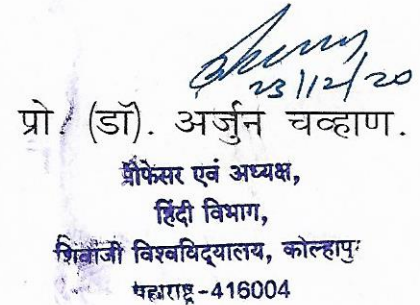 23/12/20
प्रो. (डॉ). अर्जुन चव्हाण.
प्रोफेसर एवं अध्यक्ष,
हिंदी विभाग,
शिवाजी विश्वविद्यालय, कोल्हापुर
महाराष्ट्र-416004